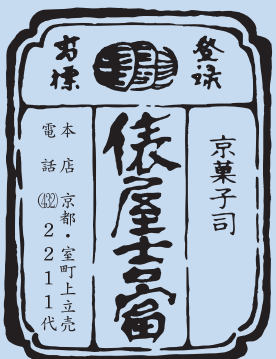 登録
商標
京菓子司
俵屋吉富
本店 京都・室町上立売
電話 (432)2211代